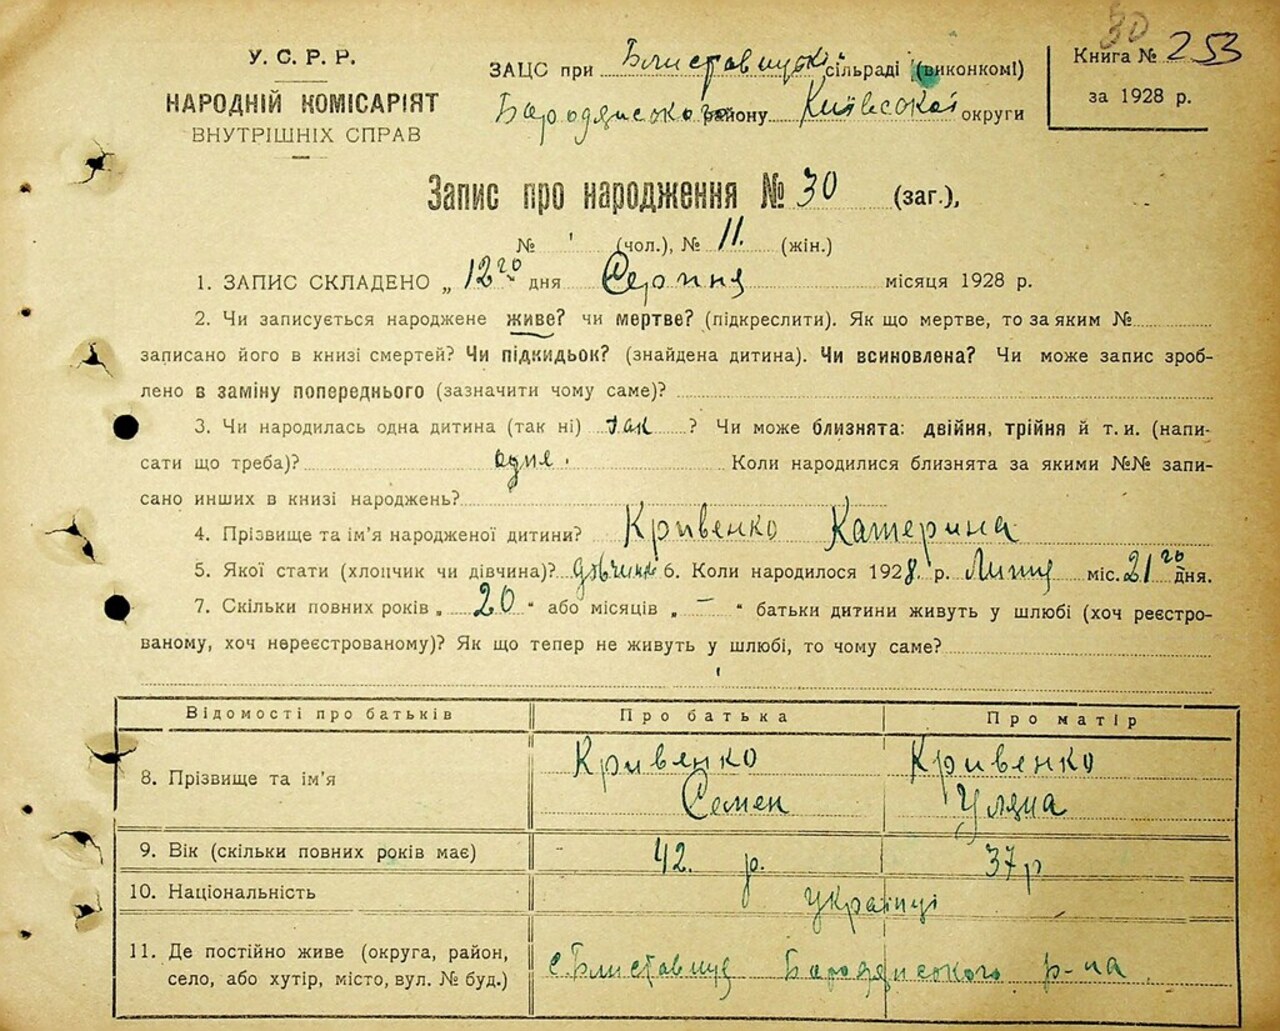 30
У. С. Р. Р.
НАРОДНІЙ КОМІСАРІЯТ
ВНУТРІШНІХ СПРАВ
ЗАЦС при Блиставицькі сільраді (виконкомі)
Бородянського району Київської округи
Книга № 253
за 1928 р.
Запис про народження № 30 (заг.),
№ (чол.), № 11. (жін.)
1. ЗАПИС СКЛАДЕНО „ 12го дня Серпня місяця 1928 р.
2. Чи записується народжене живе? чи мертве? (підкреслити). Як що мертве, то за яким №
записано його в книзі смертей? Чи підкидьок? (знайдена дитина). Чи всиновлена? Чи може запис зроб-
лено в заміну попереднього (зазначити чому саме)?
3. Чи народилась одна дитина (так ні) так ? Чи може близнята: двійня, трійня й т. и. (напи-
сати що треба)? одна. Коли народилися близнята за якими №№ запи-
сано инших в книзі народжень?
4. Прізвище та ім'я народженої дитини? Кривенко Катерина
5. Якої стати (хлопчик чи дівчина)? дівчина 6. Коли народилося 1928. р. Липця міс. 21го дня.
7. Скільки повних років „ 20 “ або місяців „ — “ батьки дитини живуть у шлюбі (хоч реєстро-
ваному, хоч нереєстрованому)? Як що тепер не живуть у шлюбі, то чому саме?
Відомості про батьків Про батька Про матір
8. Прізвище та ім'я Кривенко Семен Кривенко Уляна
9. Вік (скільки повних років має) 42. р. 37 р
10. Національність Українці
11. Де постійно живе (округа, район,
село, або хутір, місто, вул. № буд.) с. Блиставиця Бородянського р-на.